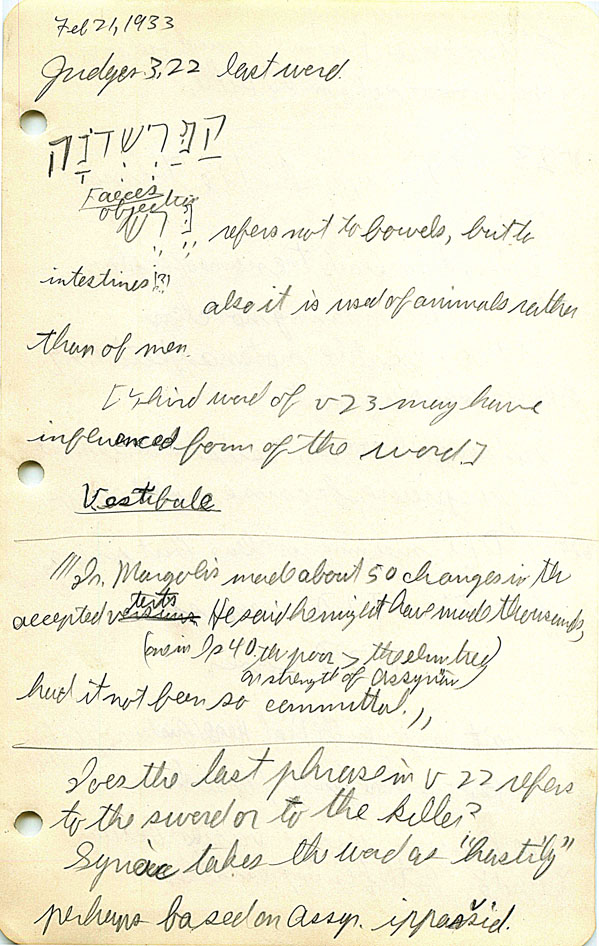 Feb 21, 1933
Judges 3,22 last word.
Faeces
objection
refers not to bowels, but to
intestines [?]
also it is used of animals rather
than of men.
[Third word of v 23 may have
influenced form of the word.]
Vestibule
Dr. Margolis made about 50 changes in the
texts
accepted versions He said he might have made thousands,
(as in Is 40. the poor > the elm tree)
on strength of Assyrian
had it not been so committal.
Does the last phrase in v 22 refers
to the sword or to the killer?
Syriac takes the word as "hastily"
perhaps based on Assyr. ipparšid.